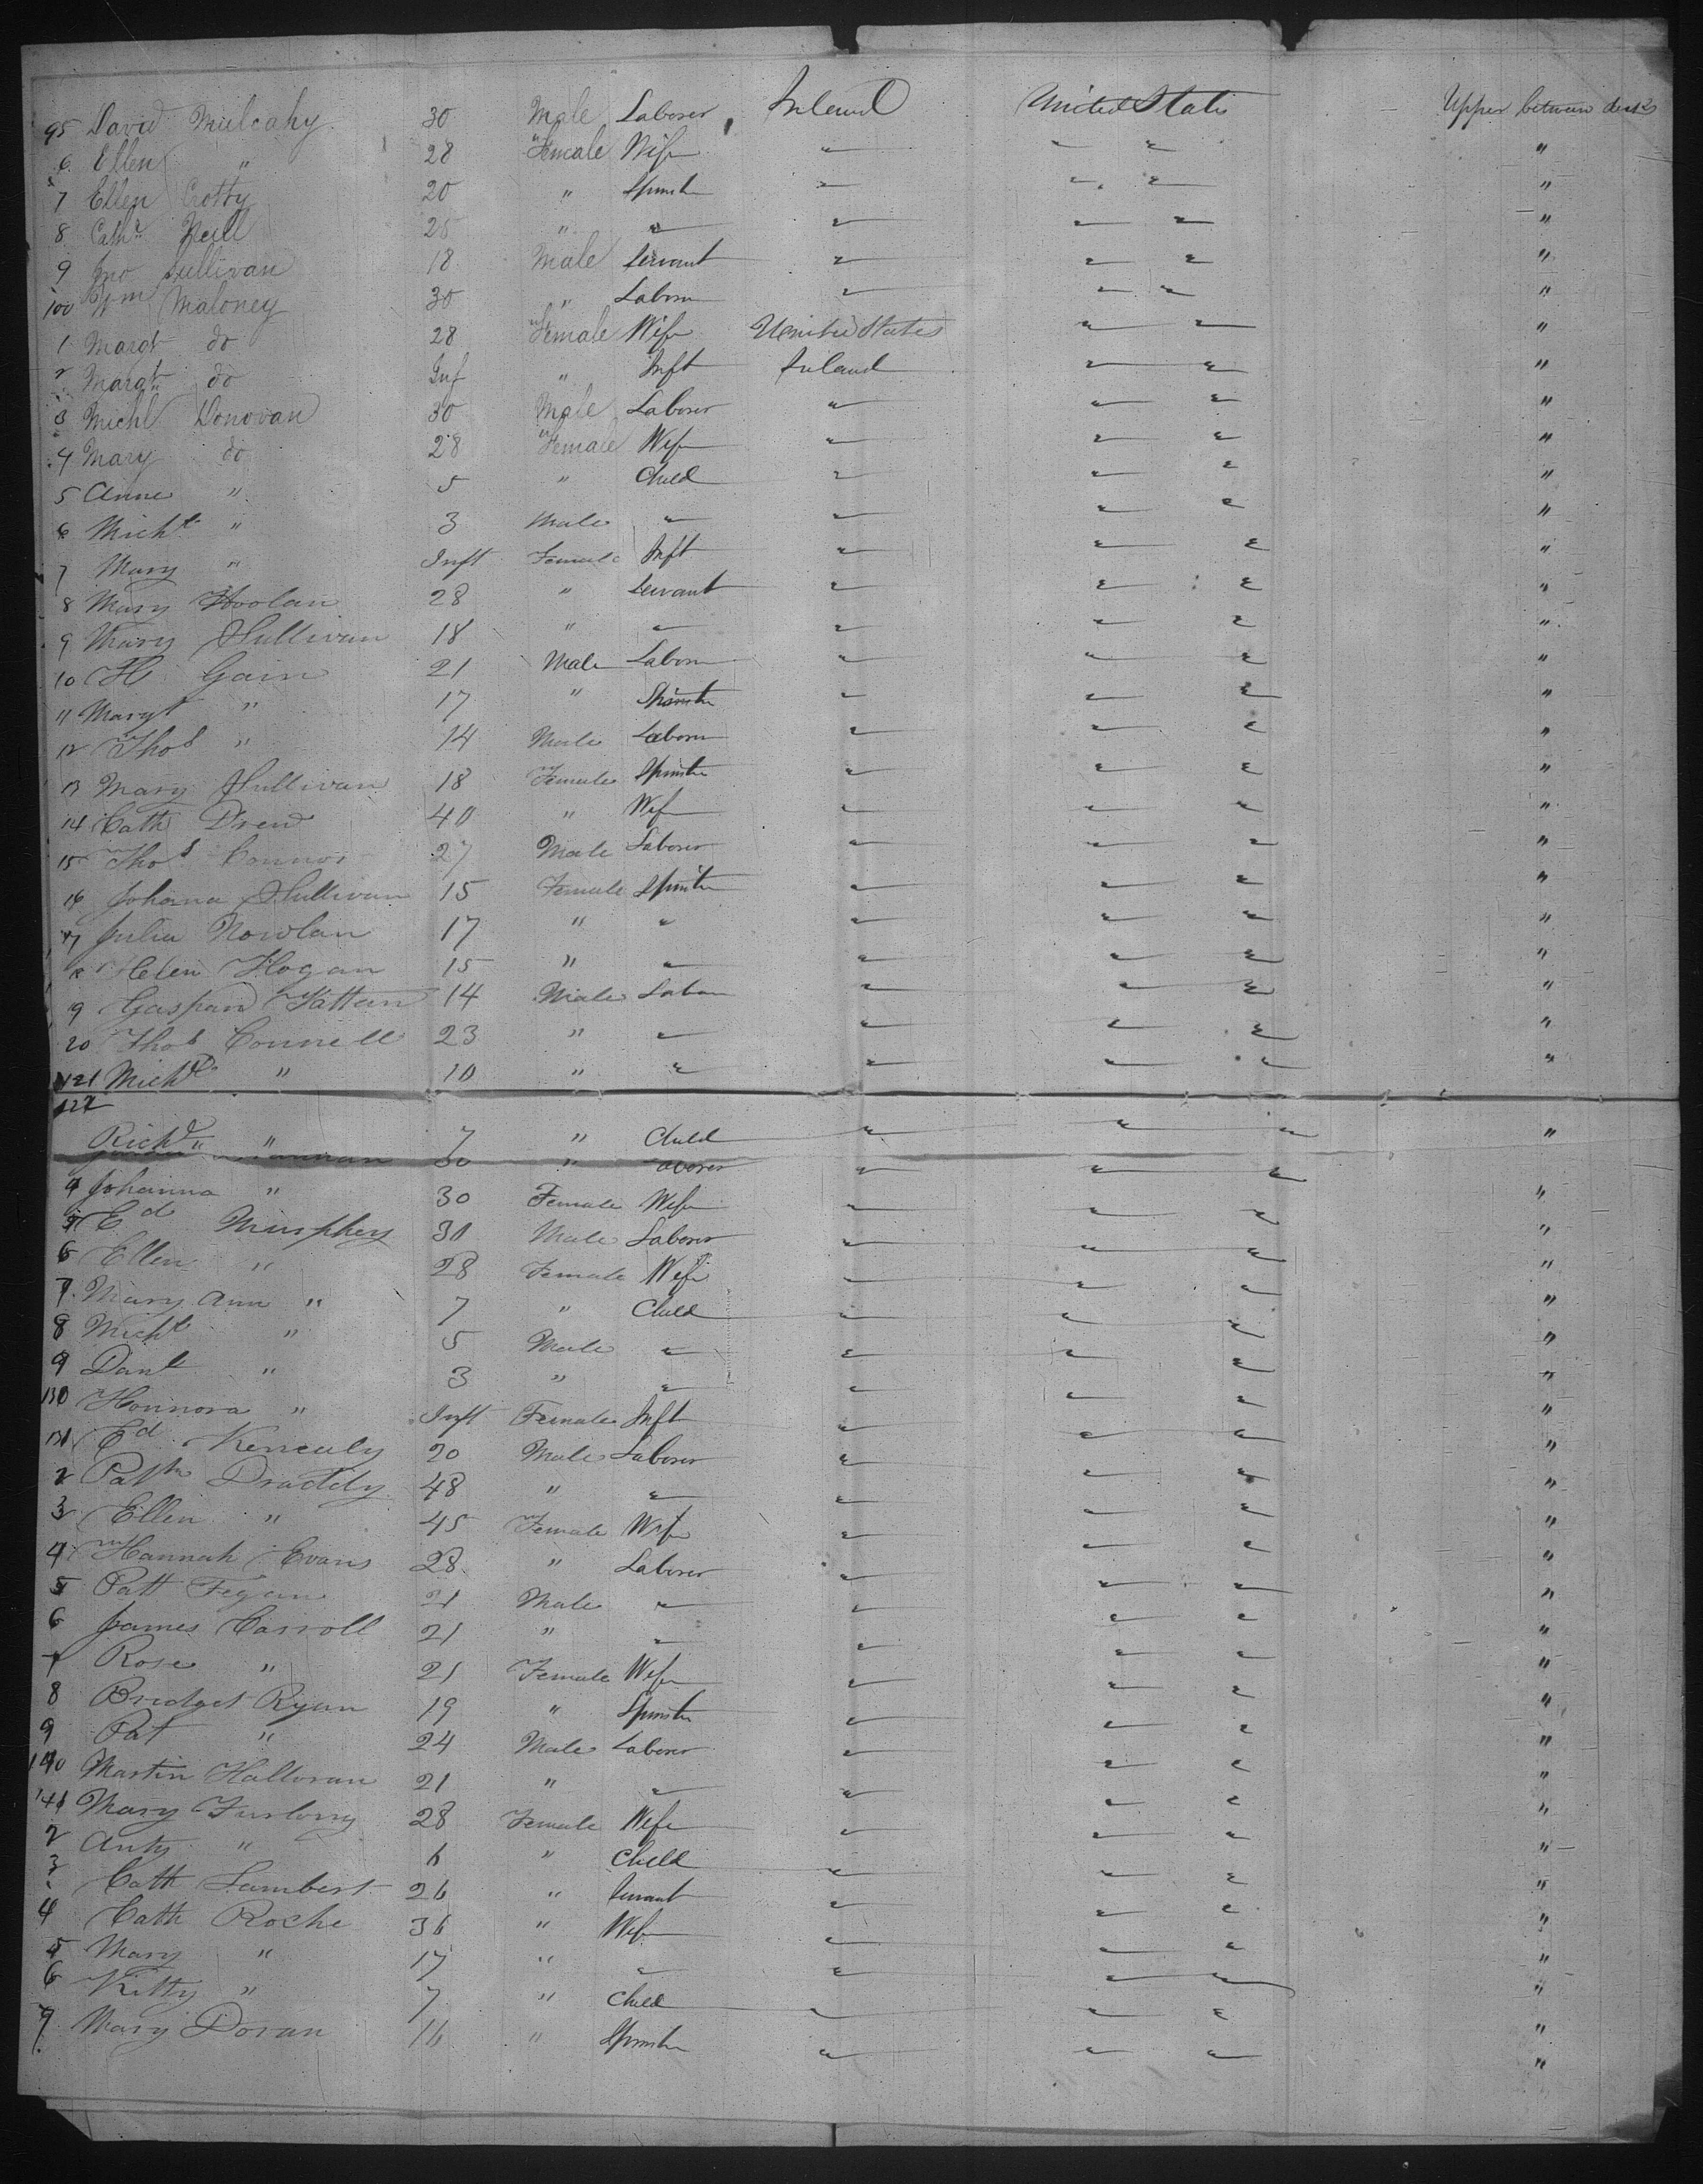 95 David Mulcahy 30 Male Laborer Ireland United States Upper between decks
6 Ellen " 28 Female Wife " " " "
7 Ellen Crotty 20 " Spinster " " " "
8 Cath Neill 25 " " " " " "
9 Jno Sullivan 18 Male Servant " " " "
100 Wm Maloney 30 " Laborer " " " "
1 Margt do 28 Female Wife United States " " "
2 Margt do Inf " Inft Ireland " " "
3 Michl Donovan 30 Male Laborer " " " "
4 Mary do 28 Female Wife " " " "
5 Anne " 5 " Child " " " "
6 Michl " 3 Male " " " " "
7 Mary " Inft Female Inft " " " "
8 Mary Hoolan 28 " Servant " " " "
9 Mary Sullivan 18 " " " " " "
10 H Gain 21 Male Laborer " " " "
11 Margt " 17 " Spinster " " " "
12 Thos " 14 Male Laborer " " " "
13 Mary Sullivan 18 Female Spinster " " " "
14 Cath Drew 40 " Wife " " " "
15 Thos Connor 27 Male Laborer " " " "
16 Johana Sullivan 15 Female Spinster " " " "
17 Julia Nowlan 17 " " " " " "
8 Helen Hogan 15 " " " " " "
9 Gaspard 14 Male Labor " " " "
20 Thos Connell 23 " " " " " "
121 Michl " 10 " " " " " "
122
Richd " 7 " Child " " " "
30 " Laborer " " "
4 Johanna " 30 Female Wife " " " "
5 Ed Murphey 31 Male Laborer " " " "
6 Ellen " 28 Female Wife " " " "
7 Mary Ann " 7 " Child " " " "
8 Michl " 5 Male " " " " "
9 Danl " 3 " " " " " "
130 Honnora " Inft Female Inft " " " "
131 Ed 20 Male Laborer " " " "
2 Patk Draddy 48 " " " " " "
3 Ellen " 45 Female Wife " " " "
4 Hannah Evans 28 " Laborer " " " "
5 Patt Fegan 21 Male " " " " "
6 James Carroll 21 " " " " " "
7 Rose " 21 Female Wife " " " "
8 Bridget Ryan 19 " Spinster " " " "
9 Pat " 24 Male Laborer " " " "
140 Martin Halloran 21 " " " " " "
141 Mary Furlong 28 Female Wife " " " "
2 Anty " 6 " Child " " " "
3 Cath Lambert 26 " Servant " " " "
4 Cath Roche 36 " Wife " " " "
5 Mary " 17 " " " " " "
6 Kitty " 7 " Child " " " "
7 Mary Doran 16 " Spinster " " " "